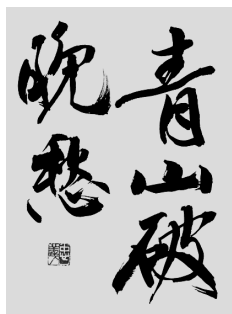 青山破
晚愁